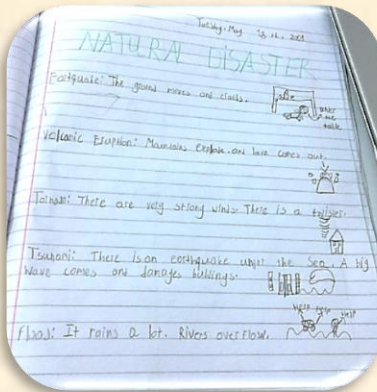 Tuesday, May
NATURAL DISASTER
Earthquake: The ground moves and cracks.
under
the
table
Volcanic Eruption: Mountains explode and lava comes out.
Tornado: There are very strong winds. There is a twister.
Tsunami: There is an earthquake under the Sea. A big
wave comes and damages buildings.
HELP HELP HELP
Flood: It rains a lot. Rivers overflow.